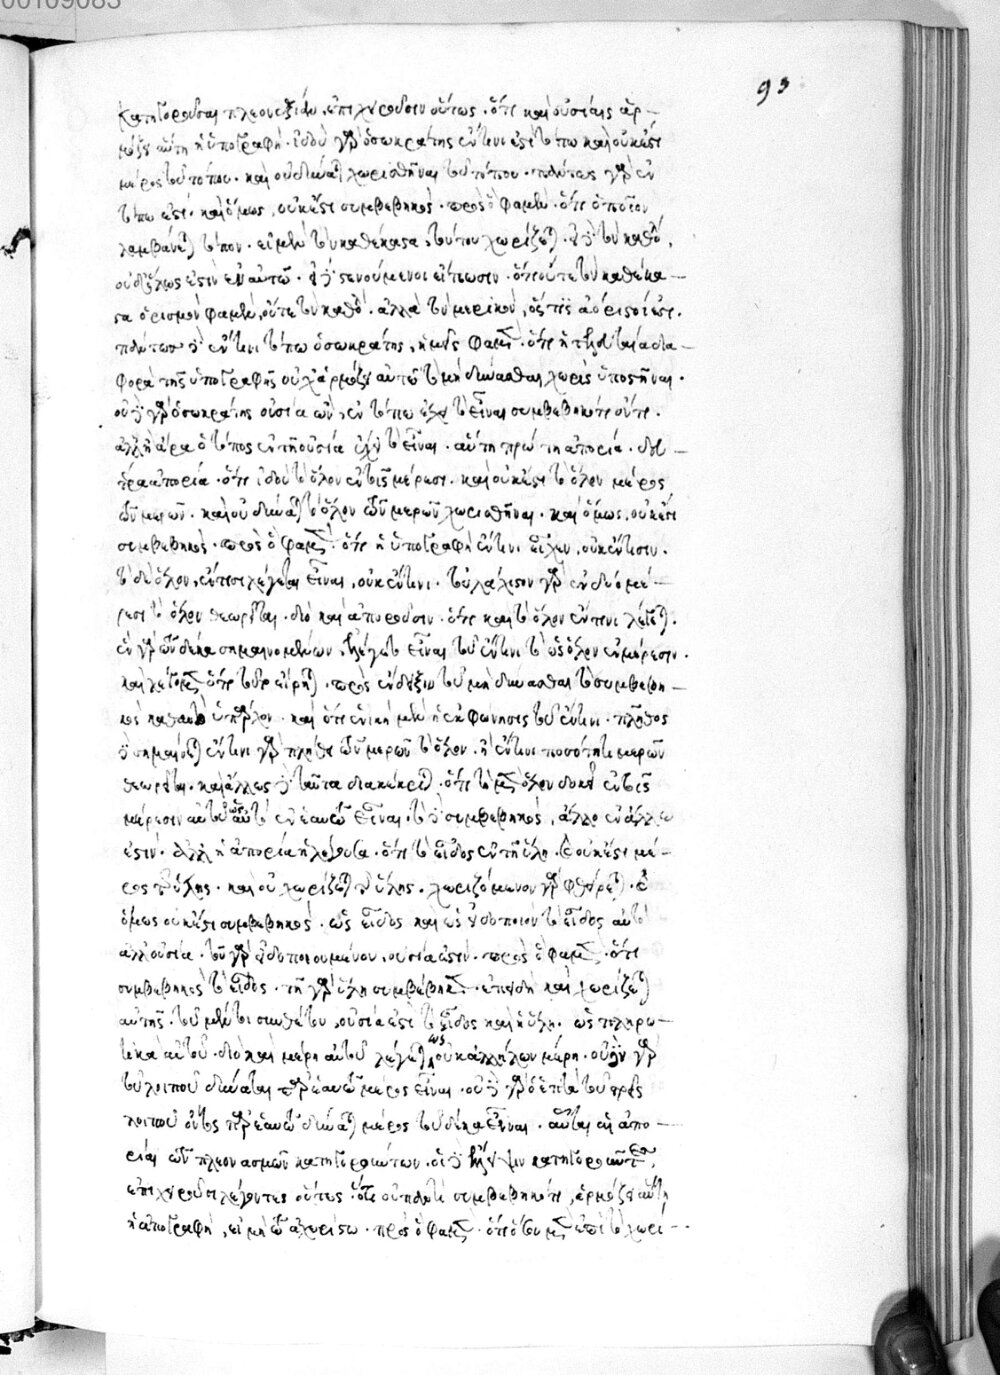 00109083
93
κατηγοροῦσαι πλεονεξίαν, ἐπιχειροῦσιν οὕτως· ὅτι καὶ οὐσίαις ἁρ-
μόζει αὕτη ἡ ὑπογραφή· ἰδοὺ γὰρ ὁ σωκράτης ἔν τινι ἐστὶ τόπω καὶ οὐκ ἔστι
μέρος τοῦ τόπου· καὶ οὐ δύναται χωρισθῆναι τοῦ τόπου· πάντως γὰρ ἐν
τόπω ἐστί· καὶ ὅμως, οὐκ ἔστι συμβεβηκός· πρὸς ὃ φαμὲν· ὅτι ὁποῖον
λαμβάνεται τόπον· εἰ μὲν τὸν καθέκαστα, τούτου χωρίζεται· εἰ δὲ τὸν καθόλου,
οὐδόλως ἐστὶν ἐν αὐτῶ· εἰ δὲ στενούμενοι εἴπωσιν· ὅτι οὔτε τὸν καθέκα-
στα ὁρισμὸν φαμὲν, οὔτε τὸν καθόλου· ἀλλὰ τὸν μερικὸν, ὅστις ἀόριστός ἐστι·
πάντως δὲ ἔν τινι τόπω ὁ σωκράτης, ἡμεῖς φαμὲν· ὅτι ἡ τελευταία δια-
φορὰ τῆς ὑπογραφῆς οὐχ ἁρμόζει αὐτῶ τὸ μὴ δύνασθαι χωρὶς ὑποστῆναι·
οὐ δὲ γὰρ ὁ σωκράτης οὐσία ὢν, ἐν τόπω ἔχει τὸ εἶναι συμβεβηκότι ὄντι·
ἀλλ' ἢ ἄρα ὁ τόπος ἐν τῆ οὐσία ἔχει τὸ εἶναι· αὕτη πρώτη ἀπορία· δευ-
τέρα ἀπορία· ὅτι ἰδοὺ τὸ ὅλον ἐν τοῖς μέρεσι· καὶ οὐκ ἔστι τὸ ὅλον μέρος
τῶν μερῶν· καὶ οὐ δύναται τὸ ὅλον τῶν μερῶν χωρισθῆναι· καὶ ὅμως, οὐκ ἔστι
συμβεβηκός· πρὸς ὃ φαμὲν· ὅτι ἡ ὑπογραφὴ ἔν τινι εἶχεν, οὐκ ἔν τισιν·
τὸ δὲ ὅλον, ἔν τισι λέγεται εἶναι, οὐκ ἔν τινι· τοὐλάχιστον γὰρ ἐν δυσὶ μέ-
ρεσι τὸ ὅλον θεωρεῖται· διὸ καὶ ἀποροῦσιν· ὅτι καὶ τὸ ὅλον ἔν τινι λέγεται·
ἓν γὰρ τῶν δέκα σημαινομένων, ἐλέγετο εἶναι τοῦ ἔν τινι τὸ ὡς ὅλον ἐν μέρεσιν·
καὶ λέγομεν ὅτι τοῦτο εἴρηται· πρὸς ἔνδειξιν τοῦ μὴ δύνασθαι τὸ συμβεβη-
κὸς καθαυτὸ ὑπάρχον· καὶ ὅτι ἑνικὴ μὲν ἡ ἐκφώνησις τοῦ ἔν τινι· πλῆθος
δὲ σημαίνεται ἔν τινι γὰρ πλήθει τῶν μερῶν τὸ ὅλον· ἢ ἔν τινι ποσότητι μερῶν
θεωρεῖται· καὶ ἄλλως δὲ ταῦτα διακέκριται· ὅτι τὸ μὲν ὅλον δοκεῖ ἐν τοῖς
μέρεσιν αὐτοῦ ὡς αὐτὸ ἐν ἑαυτῶ εἶναι· τὸ δὲ συμβεβηκὸς, ἄλλο ἐν ἄλλω
ἐστίν· ἄλλη ἀπορία ἡ λέγουσα· ὅτι τὸ εἶδος ἐν τῆ ὕλη· καὶ οὐκ ἔστι μέ-
ρος τῆς ὕλης· καὶ οὐ χωρίζεται τῆς ὕλης· χωριζόμενον γὰρ φθείρεται· καὶ
ὅμως οὐκ ἔστι συμβεβηκὸς· ὡς εἶδος καὶ ὡς εἰδοποιὸν τὸ εἶδος αὐτὸ
ἀλλ' οὐσία· τοῦ γὰρ εἰδοποιουμένου, οὐσία ἐστίν· πρὸς ὃ φαμὲν· ὅτι
συμβεβηκὸς τὸ εἶδος· τῆ γὰρ ὕλη συμβέβηκε· ἐπειδὴ καὶ χωρίζεται
αὐτῆς· τοῦ μέν τοι συνθέτου, οὐσία ἐστὶ τὸ εἶδος καὶ ἡ ὕλη· ὡς πληρω-
τικὰ αὐτοῦ· διὸ καὶ μέρη αὐτοῦ λέγεται, ὡς οὐκ ἀλλήλων μέρη· οὐδὲν γὰρ
τοῦ λοιποῦ δύναται παρ' ἑαυτοῦ μέρος εἶναι· οὐ δὲ γὰρ ὁ ἑπτὰ τοῦ τρεῖς
λοιποῦ ὄντος παρ' ἑαυτοῦ δύναται μέρος τοῦ δέκα εἶναι· αὗται αἱ ἀπο-
ρίαι τῶν πλεονασμὸν κατηγορούντων· οἱ δὲ ἔλλειψιν κατηγοροῦντες,
ἐπιχειροῦσι λέγοντες οὕτως· ὅτι οὐ παντὶ συμβεβηκότι, ἁρμόζει αὕτη
ἡ ὑπογραφὴ, εἰ μὴ τῶ ἀχωρίστω· πρὸς ὃ φαμὲν· ὅτι ὅσον μὲν ἐπὶ τὸ χωρι-